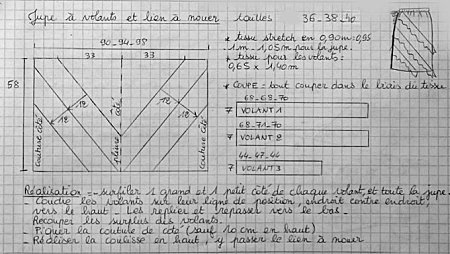 Jupe à volants et lien à nouer tailles 36-38-40
* tissu stretch en 0,90m : 0,95
1m - 1,05m pour la jupe.
* tissu pour les volants :
0,65 x 1,40m
* COUPE = tout couper dans le biais du tissu
90-94-98
33 33
58
12
12
12
12
couture côté
pliure côté
couture côté
68-68-70
7 VOLANT 1
68-71-70
7 VOLANT 2
44-47-44
7 VOLANT 3
Réalisation = - surfiler 1 grand et 1 petit côté de chaque volant, et toute la jupe.
- Coudre les volants sur leur ligne de position, endroit contre endroit,
vers le haut. Les replier et repasser vers le bas.
Recouper les surplus des volants.
- Piquer la couture de côté (sauf 10 cm en haut)
- Réaliser la coulisse en haut, y passer le lien à nouer